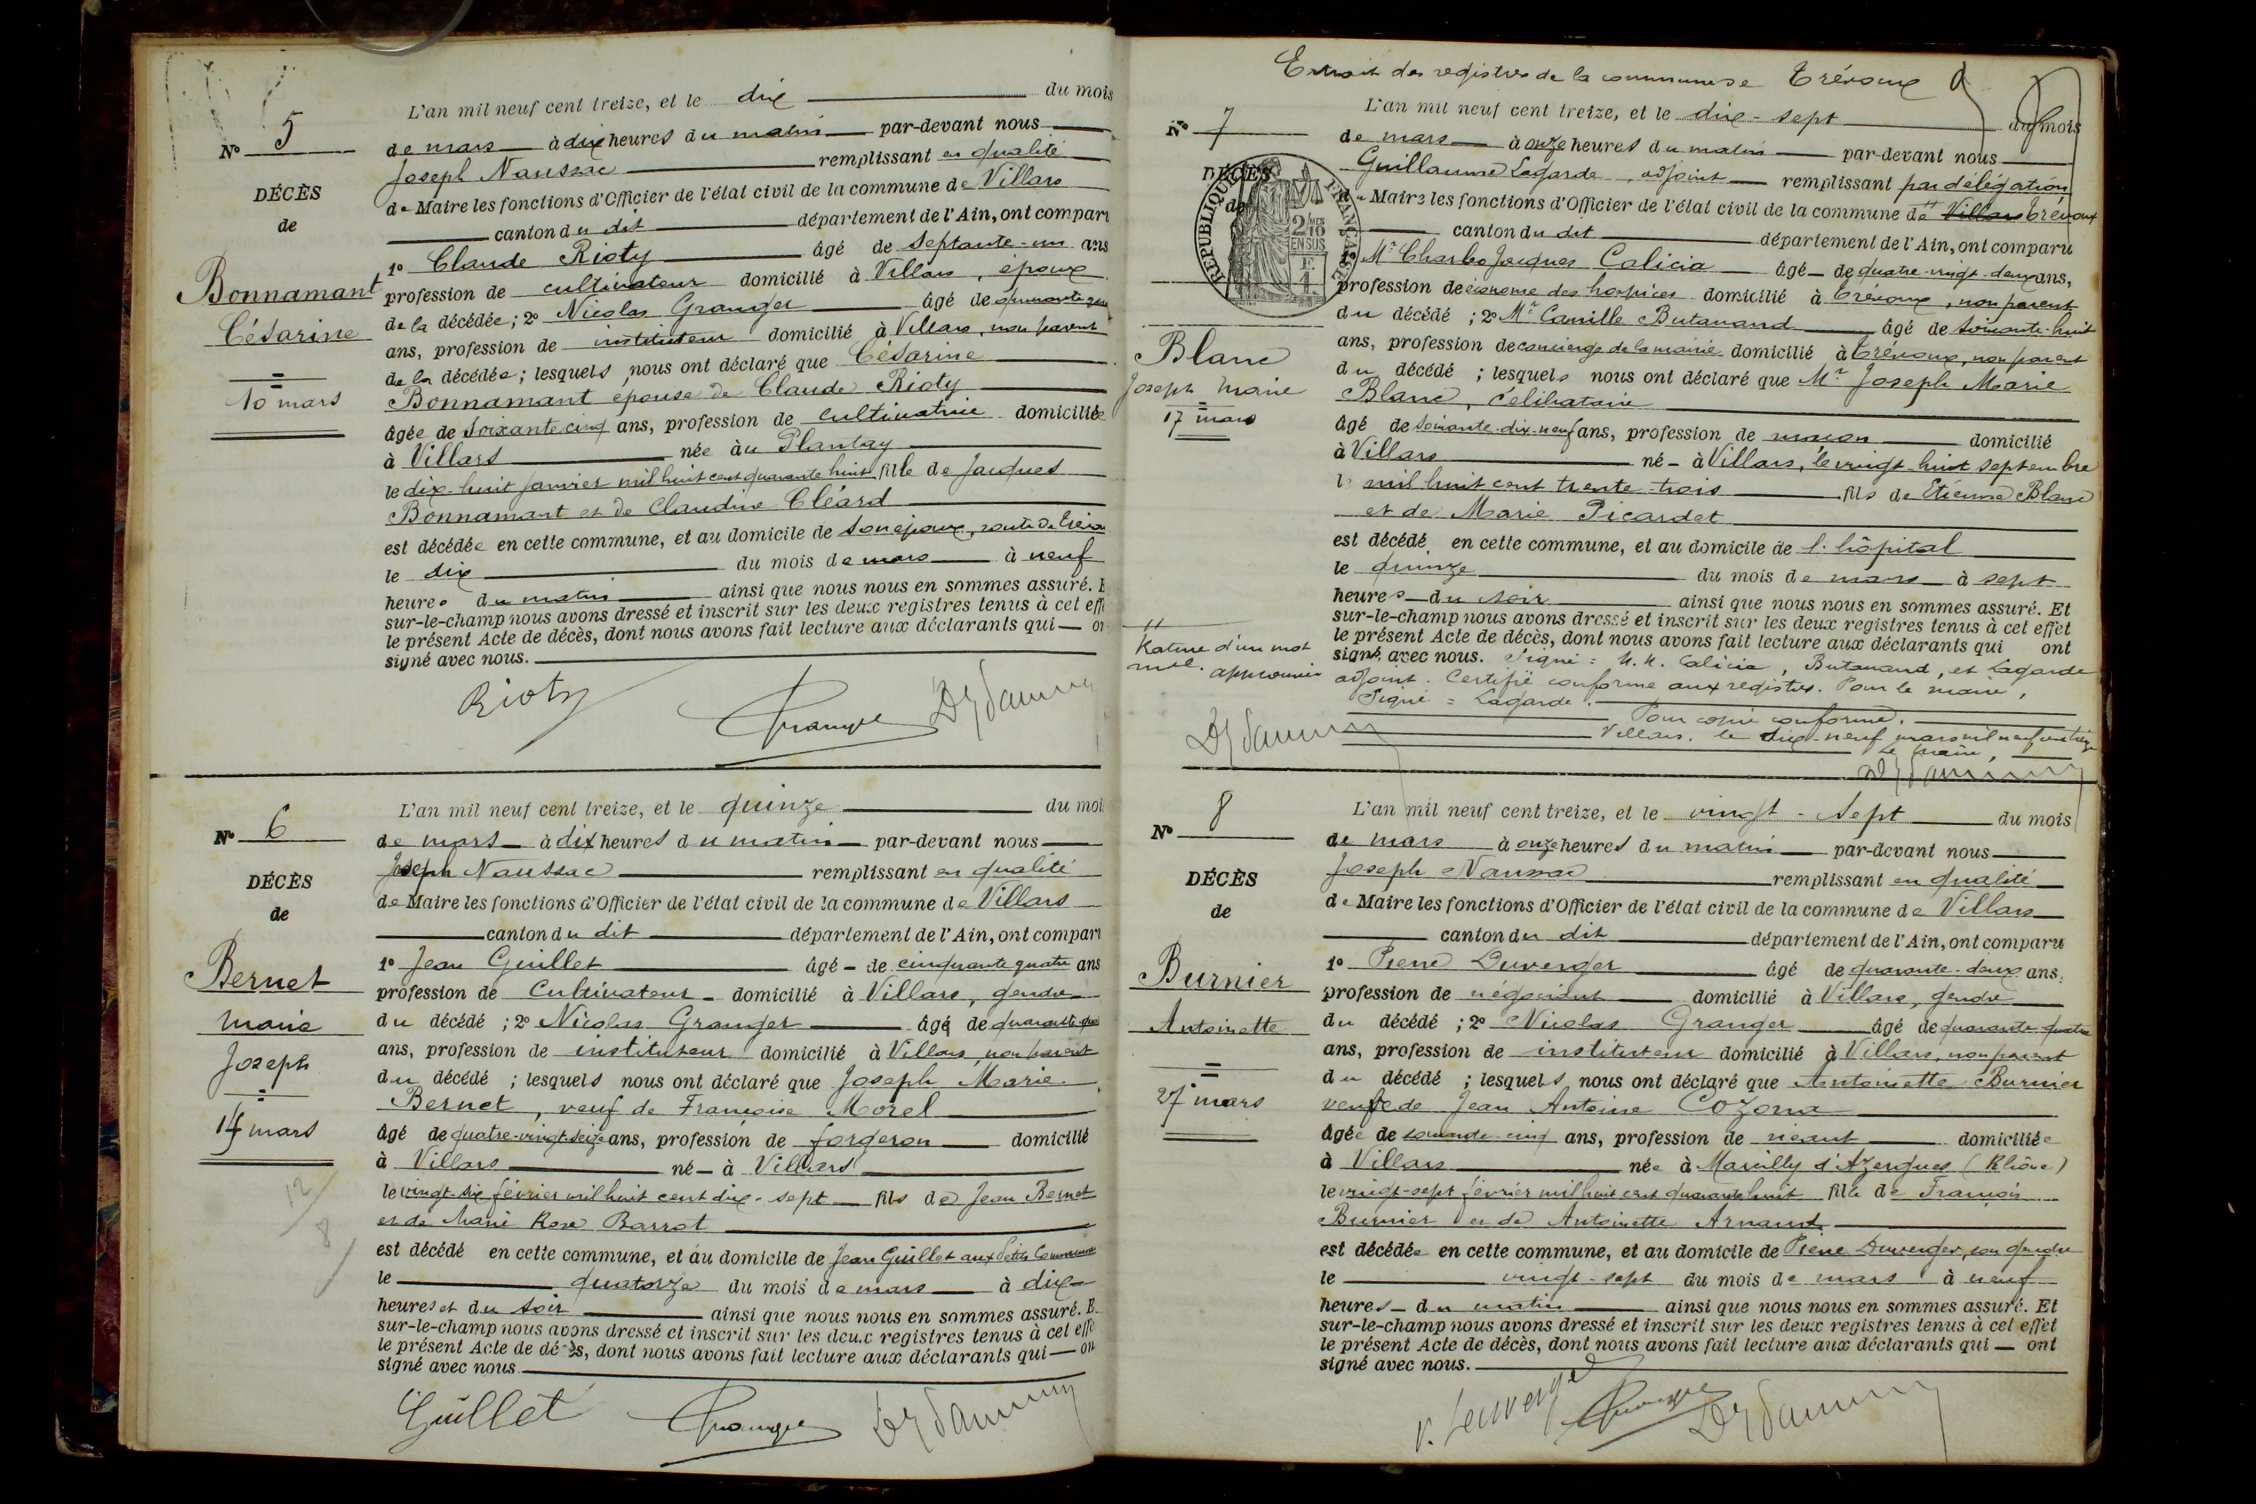 L'an mil neuf cent treize, et le dix du mois
Nº 5
de mars à dix heures du matin par-devant nous
Joseph Naussac remplissant en qualité
DÉCÈS
de Maire les fonctions d'Officier de l'état civil de la commune de Villars
de
canton du dit département de l'Ain, ont compar
1º Claude Rioty âgé de septante-un ans
Bonnamant
profession de cultivateur domicilié à Villars, époux
Césarine
de la décédée; 2º Nicolas Granger âgé de quarante
ans, profession de instituteur domicilié à Villars, non parent
de la décédée; lesquels nous ont déclaré que Césarine
10 mars
Bonnamant épouse de Claude Rioty
âgée de soixante cinq ans, profession de cultivatrice domiciliée
à Villars née au Plantay
le dix-huit janvier mil huit cent quarante huit fille de Jacques
Bonnamant et de Claudine Cléard
est décédée en cette commune, et au domicile de son époux, route de
le dix du mois de mars à neuf
heures du matin ainsi que nous nous en sommes assuré. E
sur-le-champ nous avons dressé et inscrit sur les deux registres tenus à cet effe
le présent Acte de décès, dont nous avons fait lecture aux déclarants qui on
signé avec nous.
Rioty Granger
L'an mil neuf cent treize, et le quinze du moi
Nº 6
de mars à dix heures du matin par-devant nous
Joseph Naussac remplissant en qualité
DÉCÈS
de Maire les fonctions d'Officier de l'état civil de la commune de Villars
de
canton du dit département de l'Ain, ont compar
1º Jean Guillet âgé de cinquante quatre ans
Bernet
profession de Cultivateur domicilié à Villars, gendre
Marie
du décédé; 2º Nicolas Granger âgé de quarante
ans, profession de instituteur domicilié à Villars, non parent
Joseph
du décédé; lesquels nous ont déclaré que Joseph Marie
Bernet, veuf de Françoise Morel
14 mars
âgé de quatre-vingt-seize ans, profession de forgeron domicilié
à Villars né à Villars
le vingt-six février mil huit cent dix-sept fils de Jean Bernet
et de Marie Rose Barrot
12
8
est décédé en cette commune, et au domicile de Jean Guillet aux Petites Communes
le quatorze du mois de mars à dix
heures et du soir ainsi que nous nous en sommes assuré. E
sur-le-champ nous avons dressé et inscrit sur les deux registres tenus à cet effe
le présent Acte de décès, dont nous avons fait lecture aux déclarants qui on
signé avec nous.
Guillet Granger
Extrait des registres de la commune de Trévoux
L'an mil neuf cent treize, et le dix-sept du mois
Nº 7
de mars à onze heures du matin par-devant nous
DÉCÈS
Guillaume Lagarde, adjoint remplissant par délégation
de
de Maire les fonctions d'Officier de l'état civil de la commune de Villars Trévoux
RÉPUBLIQUE FRANÇAISE
2/10 EN SUS
canton du dit département de l'Ain, ont comparu
1º Mr Charles Jacques Calicia âgé de quatre-vingt-deux ans,
profession de économe des hospices domicilié à Trévoux, non parent
du décédé; 2º Mr Camille Butavand âgé de soixante-huit
Blanc
ans, profession de concierge de la mairie domicilié à Trévoux, non parent
Joseph Marie
du décédé; lesquels nous ont déclaré que Mr Joseph Marie
Blanc, célibataire
17 mars
âgé de soixante-dix-neuf ans, profession de maçon domicilié
à Villars né à Villars, le vingt-huit septembre
mil huit cent trente-trois fils de Etienne Blanc
et de Marie Picardet
est décédé en cette commune, et au domicile de l'hôpital
le quinze du mois de mars à sept
heures du soir ainsi que nous nous en sommes assuré. Et
sur-le-champ nous avons dressé et inscrit sur les deux registres tenus à cet effet
le présent Acte de décès, dont nous avons fait lecture aux déclarants qui ont
Rature d'un mot
signé avec nous. Signé = M.M. Calicia, Butavand, et Lagarde
nul. approuvée
adjoint. Certifié conforme aux registres. Pour le maire,
Signé = Lagarde.
Pour copie conforme.
Villars, le dix-neuf mars mil neuf cent treize
Le Maire,
L'an mil neuf cent treize, et le vingt-sept du mois
Nº 8
de mars à onze heures du matin par-devant nous
Joseph Naussac remplissant en qualité
DÉCÈS
de Maire les fonctions d'Officier de l'état civil de la commune de Villars
de
canton du dit département de l'Ain, ont comparu
1º Pierre Duverger âgé de quarante-deux ans,
Burnier
profession de négociant domicilié à Villars, gendre
Antoinette
du décédé; 2º Nicolas Granger âgé de quarante-quatre
ans, profession de instituteur domicilié à Villars, non parent
du décédé; lesquels nous ont déclaré que Antoinette Burnier
27 mars
veuve de Jean Antoine Cozona
âgée de soixante-cinq ans, profession de néant domiciliée
à Villars née à Marcilly d'Azergues (Rhône)
le vingt-sept février mil huit cent quarante huit fille de François
Burnier et de Antoinette Arnaud
est décédée en cette commune, et au domicile de Pierre Duverger, son gendre
le vingt-sept du mois de mars à neuf
heures du matin ainsi que nous nous en sommes assuré. Et
sur-le-champ nous avons dressé et inscrit sur les deux registres tenus à cet effet
le présent Acte de décès, dont nous avons fait lecture aux déclarants qui ont
signé avec nous.
Granger